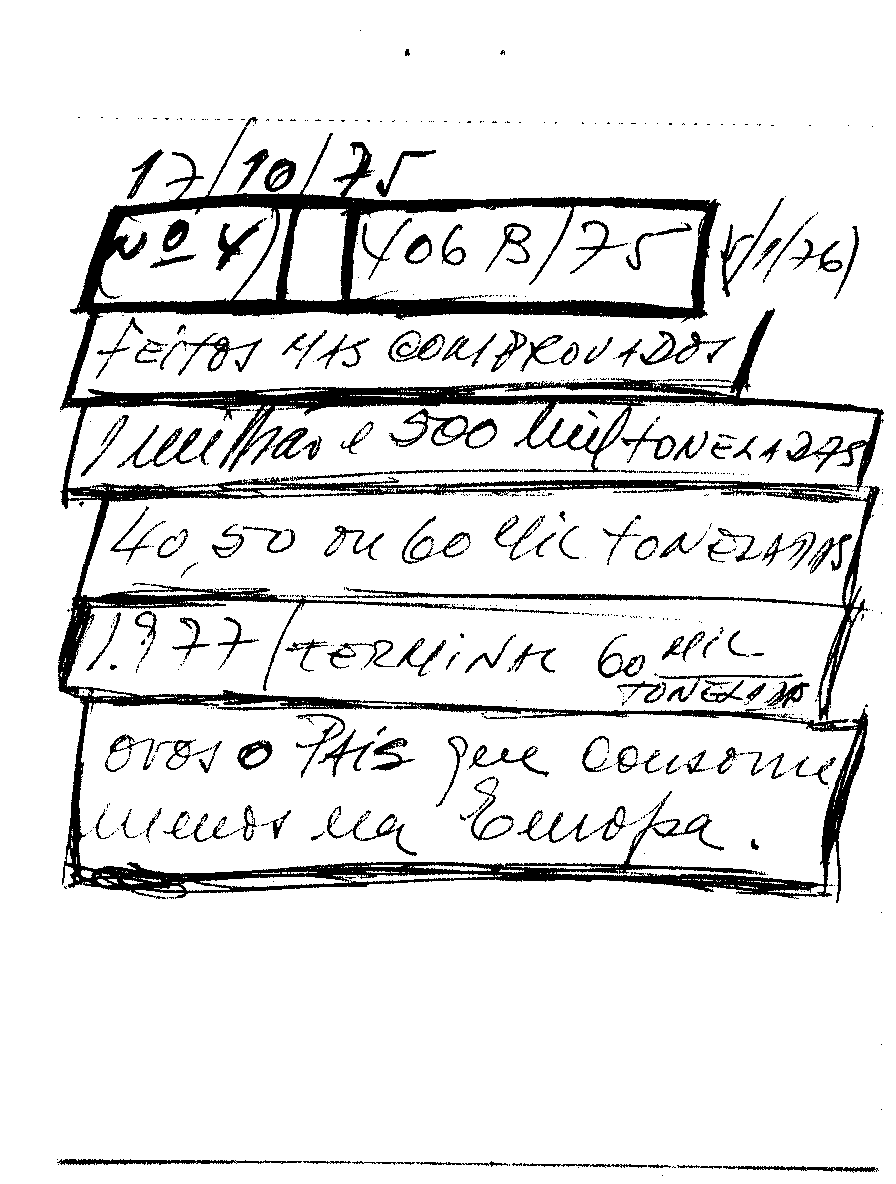 17/10/75
(Nº 4) 406 B/75 (5/1/76)
FEITOS MAS COMPROVADOS
1 milhão e 500 mil TONELADAS
40, 50 ou 60 MIL TONELADAS
1.977/TERMINAL 60 MIL
TONELADAS
ovos o País que consome
menos na Europa.